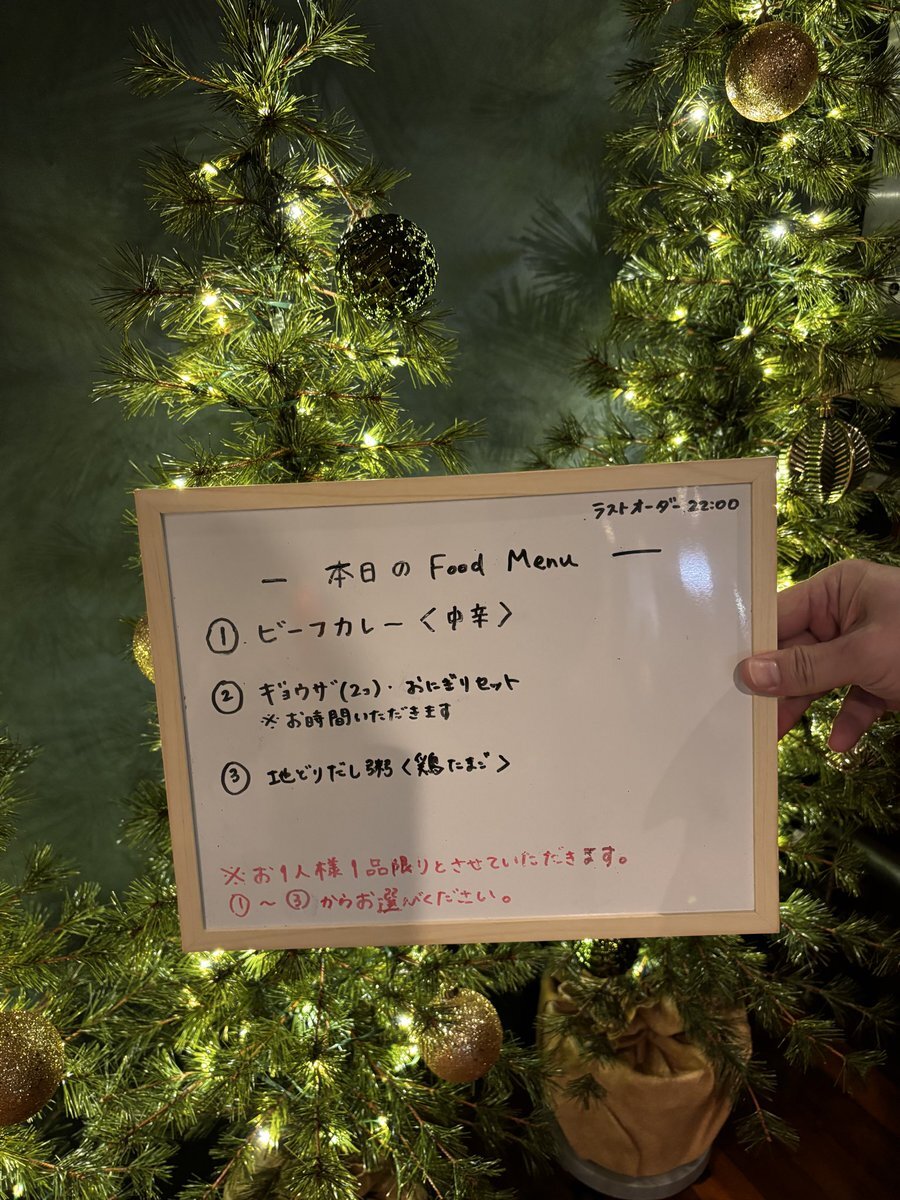 ラストオーダー 22:00
— 本日の Food Menu —
① ビーフカレー〈中辛〉
② ギョウザ(2コ)・おにぎりセット
※お時間いただきます
③ 地どりだし粥〈鶏たまご〉
※お1人様1品限りとさせていただきます。
①〜③からお選びください。